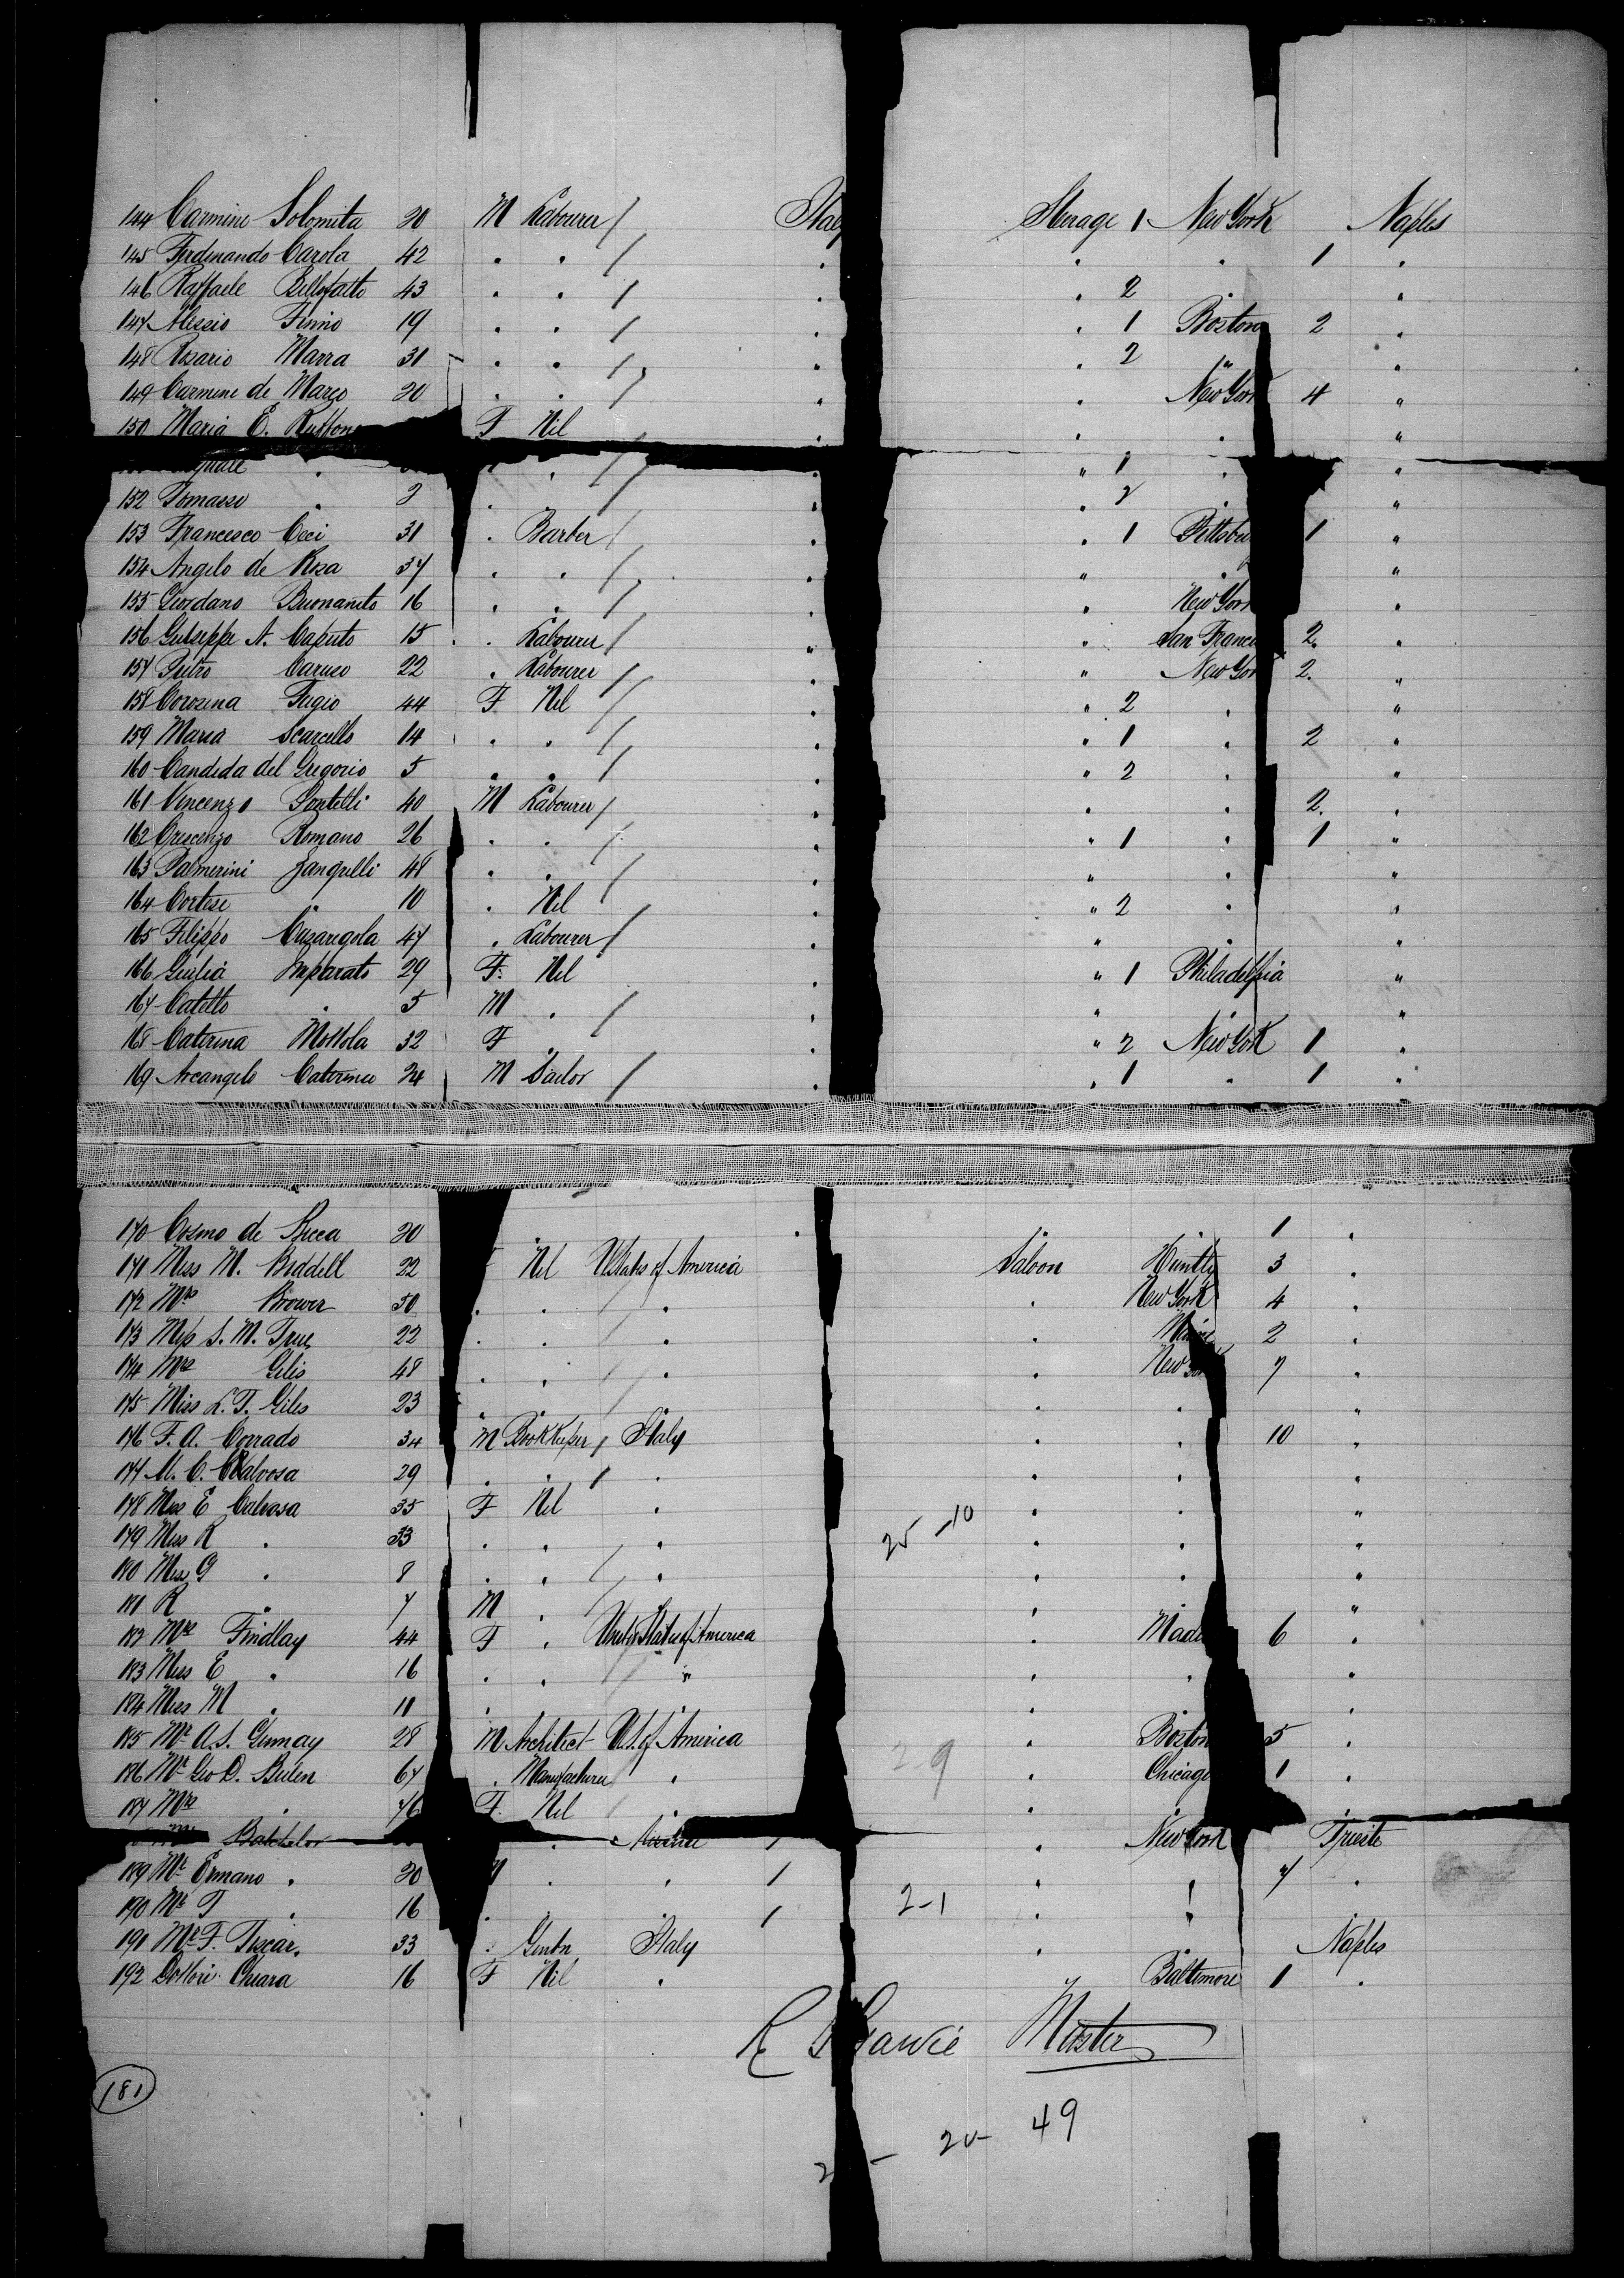 144 Carmine Solomita 20 M Labourer / Italy Sterage 1 New York Naples
145 Ferdinando Carola 42 " " / " " " 1 "
146 Raffaele Bellofatto 43 " " / " " 2 " "
147 Alessio Finno 19 " " / " " 1 Boston 2 "
148 Rosario Marra 31 " " / " " 2 " "
149 Carmine de Marco 20 " " / " " New York 4 "
150 Maria E. F Nil / " " " "
" " / " " 1 " "
152 Tomasso " " / " " 2 " "
153 Francesco Ceci 31 " Barber / " " 1 Pittsbu 1 "
154 Angelo de Rosa 37 " " / " " " "
155 Giordano Buonanito 16 " " / " " New York "
156 Guiseppe A. Caputo 15 " Labourer / " " San Franci 2. "
157 Pietro Caruso 22 " Labourer / " " New Yor 2. "
158 Fugio 44 F Nil / " " 2 " "
159 Maria Scarcello 14 " " / " " 1 " 2 "
160 Candida del Gregorio 5 " " / " " 2 " "
161 Vincenzo Santelli 40 M Labourer / " " " 2. "
162 Crescenzo Romano 26 " " / " " 1 " 1 "
163 Palmerini Zangrilli 48 " " / " " " "
164 Cortese " 10 " Nil " " 2 " "
165 Filippo Casarigola 47 " Labourer / " " " "
166 Giulia Imparato 29 F. Nil " " 1 Philadelfia "
167 Catello " 5 M " / " " " "
168 Caterina Mottola 32 F " " " 2 New York 1 "
169 Arcangelo Caterina 24 M Sailor / " " 1 " 1 "
170 Cosmo de Lucca 20 " " " " 1 "
171 Miss M. Biddell 22 Nil U.States of America Saloon Huntly 3 "
172 Mrs Brower 50 " " / " " New York 4 "
173 Miss S. M. True 22 " " / " " 2 "
174 Mrs Giles 48 " " / " " New York 7 "
175 Miss L. T. Giles 23 " " / " " " "
176 F. A. Corrado 34 M Bookkeeper / Italy " " 10 "
177 M. C. Calvosa 29 " " / " " " "
178 Miss E Calvosa 35 F Nil " " " "
179 Miss R " 33 " " " " " "
25 - 10
180 Miss G " 8 " " / " " " "
181 R " 7 M " / " " " "
182 Mrs Findlay 44 F " United States of America " Madi 6 "
183 Miss E " 16 " " / " " " "
184 Miss M " 11 " " " " " "
185 Mr A. S. 28 M Architect U.S. of America " Boston 5 "
186 Mr Geo D. Bulen 67 " Manufacturer " " Chicago 1 "
2 9
187 Mrs " 76 F Nil / " " " "
Batchelor " / " New York Trieste
189 Mr Ermano " 20 M " " / " " 7 "
190 Mr T " 16 " " " / " " "
2-1
191 Mr F. Tuscar. 33 " Gentn Italy " " Naples
192 Dottori Chiara 16 F Nil " Baltimore 1 "
Master
181
2 - 20 - 49